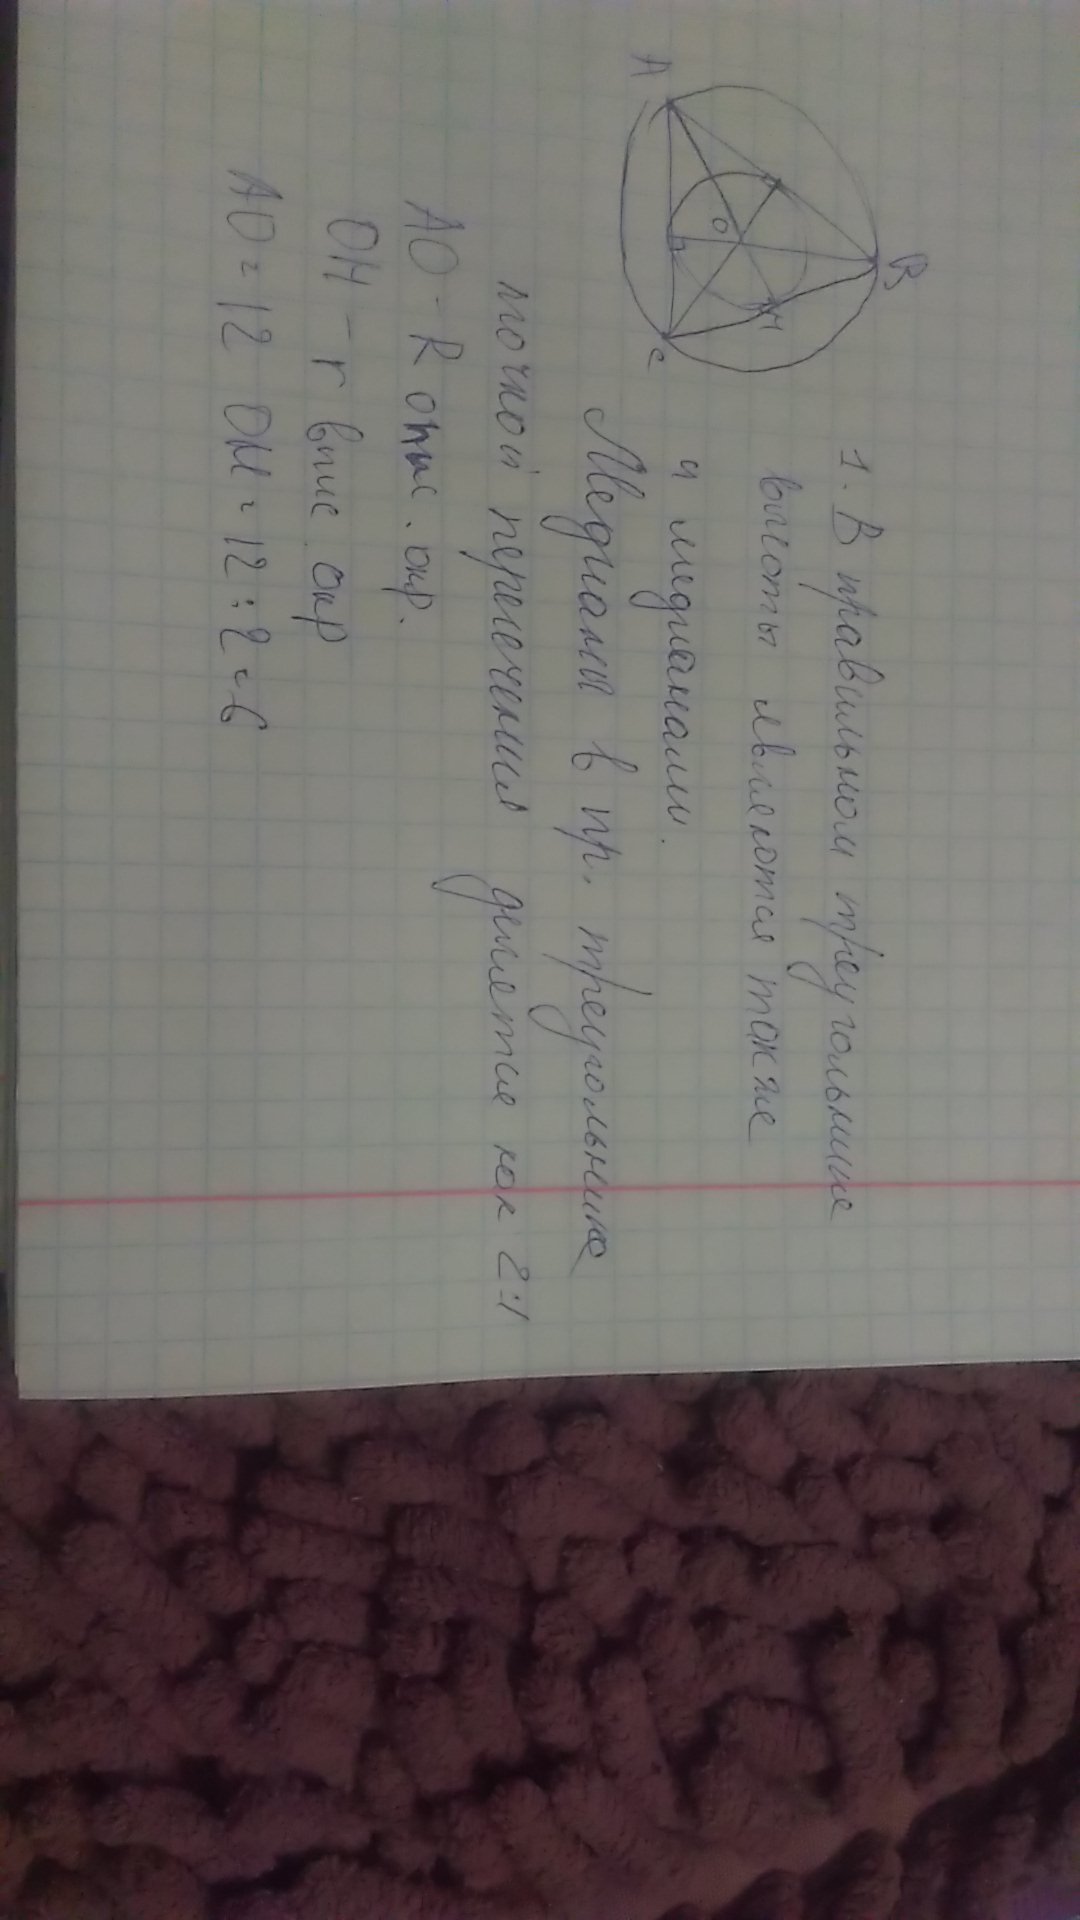 B
A
O
H
C
1. В правильном треугольнике
высоты являются также
и медианами.
Медианы в пр. треугольнике
точкой пересечения делятся как 2:1
AO - R опис. окр.
OH - r впис. окр
AO = 12 OH = 12 : 2 = 6